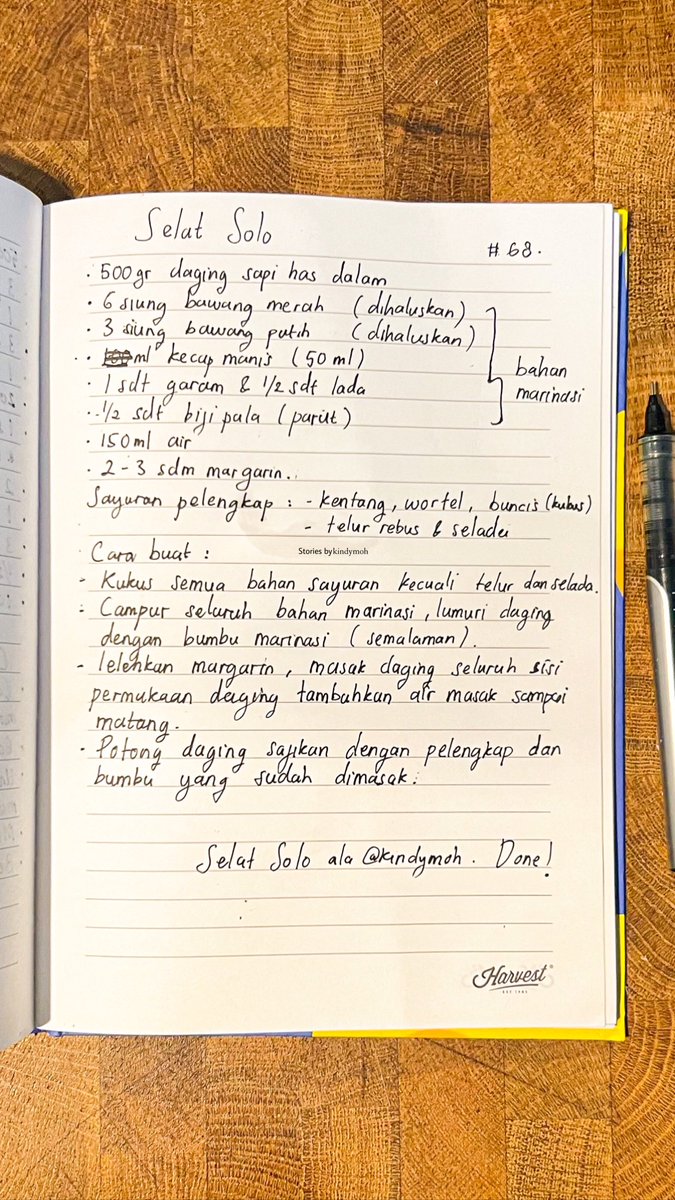 Selat Solo
# 68.
. 500gr daging sapi has dalam
. 6 siung bawang merah (dihaluskan)
. 3 siung bawang putih (dihaluskan)
. ml kecap manis (50 ml)
. 1 sdt garam & 1/2 sdt lada
. 1/2 sdt biji pala (parut)
bahan
marinasi
. 150ml air
. 2-3 sdm margarin.
Sayuran pelengkap : - kentang, wortel, buncis (kubus)
- telur rebus & selada
Cara buat :
Stories by kindymoh
- Kukus semua bahan sayuran kecuali telur dan selada.
- Campur seluruh bahan marinasi, lumuri daging
dengan bumbu marinasi (semalaman).
- lelehkan margarin, masak daging seluruh sisi
permukaan daging tambahkan air masak sampai
matang.
- Potong daging sajikan dengan pelengkap dan
bumbu yang sudah dimasak.
Selat Solo ala @kindymoh. Done!
Harvest